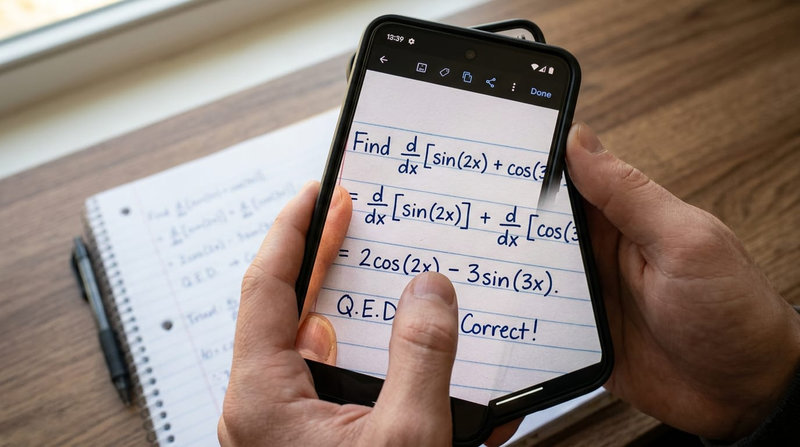 13:39
Done
Find d/dx [sin(2x) + cos(3
= d/dx [sin(2x)] + d/dx [cos(3
= 2cos(2x) - 3sin(3x).
Q.E.D Correct!
Find
Q.E.D.